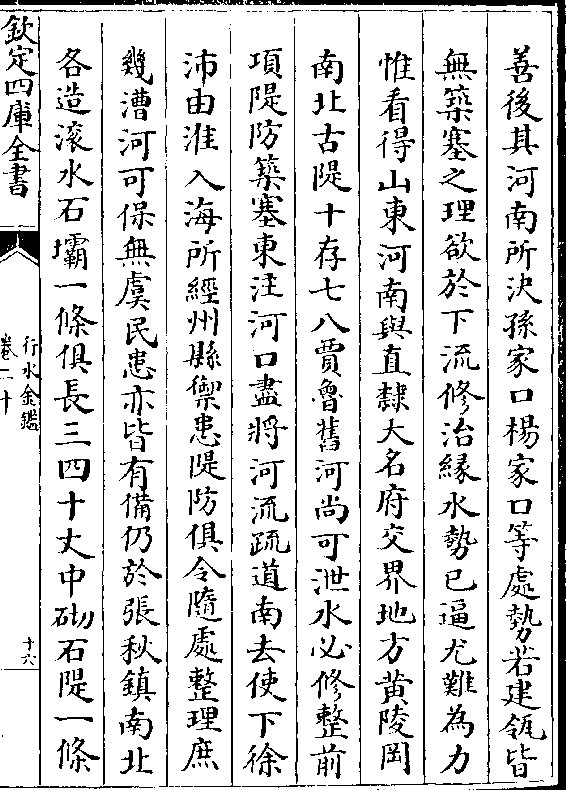 善後其河南所決孫家口楊家口等處勢若建瓴皆
無築塞之理欲於下流修治緣水勢已逼尤難為力
惟看得山東河南與直隸大名府交界地方黄陵岡
南北古隄十存七八賈魯舊河尚可泄水必修整前
項隄防築塞東注河口盡將河流疏道南去使下徐
沛由淮入海所經州縣禦患隄防俱令隨處整理庶
幾漕河可保無虞民患亦皆有備仍於張秋鎮南北
各造滚水石壩一條俱長三四十丈中砌石隄一條
欽定四庫全書
行水金鑑
卷二十
十六